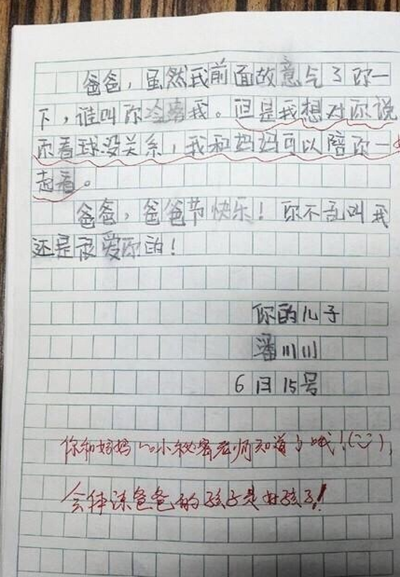 爸爸，虽然我前面故意气了你一
下，谁叫你冷落我。但是我想对你说
你看球没关系，我和妈妈可以陪你一
起看。
爸爸，爸爸节快乐！你不乱叫我
还是爱你的！
你的儿子
潘川川
6月15号
你和妈妈的小秘密老师知道了哦！
会体谅爸爸的孩子是好孩子！